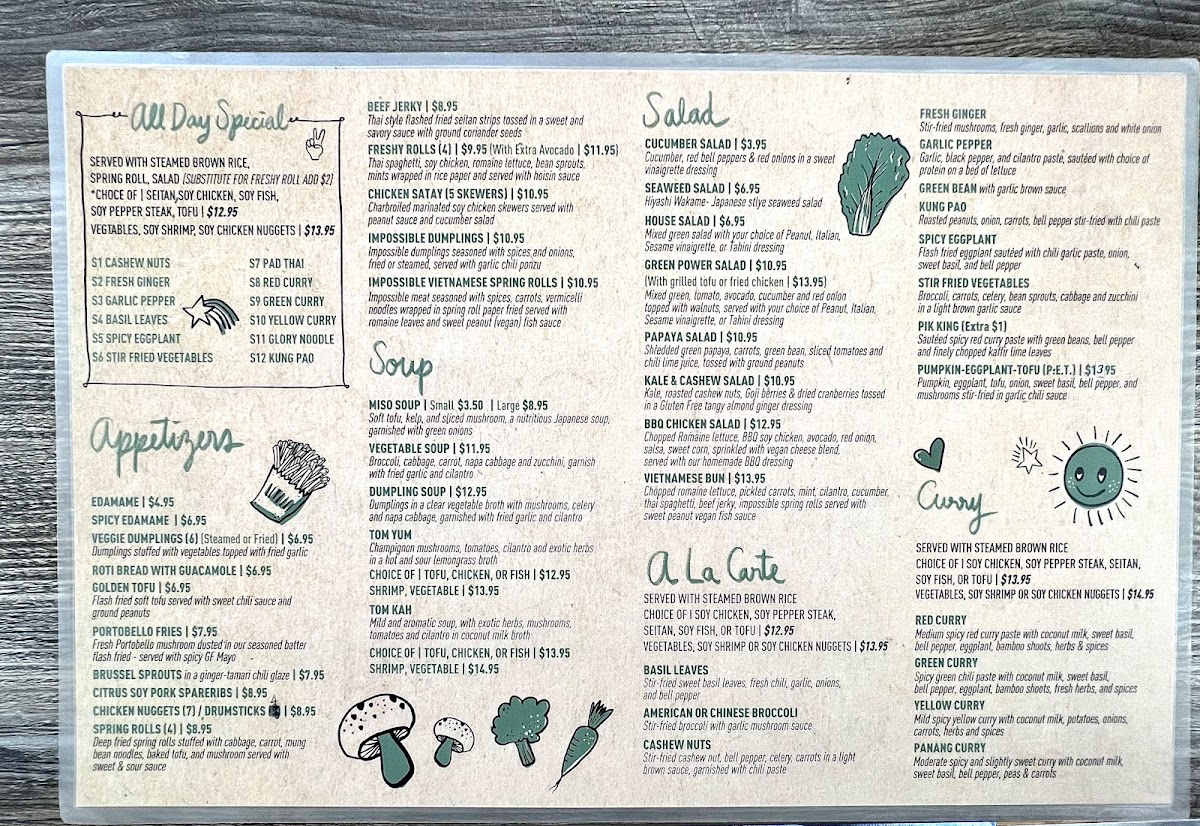 All Day Special
SERVED WITH STEAMED BROWN RICE,
SPRING ROLL, SALAD (SUBSTITUTE FOR FRESHY ROLL ADD $2)
*CHOCE OF | SEITAN,SOY CHICKEN, SOY FISH,
SOY PEPPER STEAK, TOFU | $12.95
VEGTABLES, SOY SHRIMP, SOY CHICKEN NUGGETS | $13.95
S1 CASHEW NUTS
S2 FRESH GINGER
S3 GARLIC PEPPER
S4 BASIL LEAVES
S5 SPICY EGGPLANT
S6 STIR FRIED VEGETABLES
S7 PAD THAI
S8 RED CURRY
S9 GREEN CURRY
S10 YELLOW CURRY
S11 GLORY NOODLE
S12 KUNG PAO
Appetizers
EDAMAME | $4.95
SPICY EDAMAME | $6.95
VEGGIE DUMPLINGS (6) (Steamed or Fried) | $6.95
Dumplings stuffed with vegetables topped with fried garlic
ROTI BREAD WITH GUACAMOLE | $6.95
GOLDEN TOFU | $6.95
Flash fried soft tofu served with sweet chili sauce and
ground peanuts
PORTOBELLO FRIES | $7.95
Fresh Portobello mushroom dusted in our seasoned batter
flash fried - served with spicy GF Mayo
BRUSSEL SPROUTS in a ginger-tamari chili glaze | $7.95
CITRUS SOY PORK SPARERIBS | $8.95
CHICKEN NUGGETS (7) / DRUMSTICKS | $8.95
SPRING ROLLS (4) | $8.95
Deep fried spring rolls stuffed with cabbage, carrot, mung
bean noodles, baked tofu, and mushroom served with
sweet & sour sauce
BEEF JERKY | $8.95
Thai style flashed fried seitan strips tossed in a sweet and
savory sauce with ground coriander seeds
FRESHY ROLLS (4) | $9.95 (With Extra Avocado | $11.95)
Thai spaghetti, soy chicken, romaine lettuce, bean sprouts,
mints wrapped in rice paper and served with hoisin sauce
CHICKEN SATAY (5 SKEWERS) | $10.95
Charbroiled marinated soy chicken skewers served with
peanut sauce and cucumber salad
IMPOSSIBLE DUMPLINGS | $10.95
Impossible dumplings seasoned with spices and onions,
fried or steamed, served with garlic chili ponzu
IMPOSSIBLE VIETNAMESE SPRING ROLLS | $10.95
Impossible meat seasoned with spices, carrots, vermicelli
noodles wrapped in spring roll paper fried served with
romaine leaves and sweet peanut (vegan) fish sauce
Soup
MISO SOUP | Small $3.50 | Large $8.95
Soft tofu, kelp, and sliced mushroom, a nutritious Japanese soup,
garnished with green onions
VEGETABLE SOUP | $11.95
Broccoli, cabbage, carrot, napa cabbage and zucchini, garnish
with fried garlic and cilantro
DUMPLING SOUP | $12.95
Dumplings in a clear vegetable broth with mushrooms, celery
and napa cabbage, garnished with fried garlic and cilantro
TOM YUM
Champignon mushrooms, tomatoes, cilantro and exotic herbs
in a hot and sour lemongrass broth
CHOICE OF | TOFU, CHICKEN, OR FISH | $12.95
SHRIMP, VEGETABLE | $13.95
TOM KAH
Mild and aromatic soup, with exotic herbs, mushrooms,
tomatoes and cilantro in coconut milk broth
CHOICE OF | TOFU, CHICKEN, OR FISH | $13.95
SHRIMP, VEGETABLE | $14.95
Salad
CUCUMBER SALAD | $3.95
Cucumber, red bell peppers & red onions in a sweet
vinaigrette dressing
SEAWEED SALAD | $6.95
Hiyashi Wakame- Japanese stlye seaweed salad
HOUSE SALAD | $6.95
Mixed green salad with your choice of Peanut, Italian,
Sesame vinaigrette, or Tahini dressing
GREEN POWER SALAD | $10.95
(With grilled tofu or fried chicken | $13.95)
Mixed green, tomato, avocado, cucumber and red onion
topped with walnuts, served with your choice of Peanut, Italian,
Sesame vinaigrette, or Tahini dressing
PAPAYA SALAD | $10.95
Shredded green papaya, carrots, green bean, sliced tomatoes and
chili lime juice, tossed with ground peanuts
KALE & CASHEW SALAD | $10.95
Kale, roasted cashew nuts, Goji berries & dried cranberries tossed
in a Gluten Free tangy almond ginger dressing
BBQ CHICKEN SALAD | $12.95
Chopped Romaine lettuce, BBQ soy chicken, avocado, red onion,
salsa, sweet corn, sprinkled with vegan cheese blend,
served with our homemade BBQ dressing
VIETNAMESE BUN | $13.95
Chopped romaine lettuce, pickled carrots, mint, cilantro, cucumber,
thai spaghetti, beef jerky, impossible spring rolls served with
sweet peanut vegan fish sauce
A La Carte
SERVED WITH STEAMED BROWN RICE
CHOICE OF | SOY CHICKEN, SOY PEPPER STEAK,
SEITAN, SOY FISH, OR TOFU | $12.95
VEGETABLES, SOY SHRIMP OR SOY CHICKEN NUGGETS | $13.95
BASIL LEAVES
Stir-fried sweet basil leaves, fresh chili, garlic, onions,
and bell pepper
AMERICAN OR CHINESE BROCCOLI
Stir-fried broccoli with garlic mushroom sauce
CASHEW NUTS
Stir-fried cashew nut, bell pepper, celery, carrots in a light
brown sauce, garnished with chili paste
FRESH GINGER
Stir-fried mushrooms, fresh ginger, garlic, scallions and white onion
GARLIC PEPPER
Garlic, black pepper, and cilantro paste, sautéed with choice of
protein on a bed of lettuce
GREEN BEAN with garlic brown sauce
KUNG PAO
Roasted peanuts, onion, carrots, bell pepper stir-fried with chili paste
SPICY EGGPLANT
Flash fried eggplant sautéed with chili garlic paste, onion,
sweet basil, and bell pepper
STIR FRIED VEGETABLES
Broccoli, carrots, celery, bean sprouts, cabbage and zucchini
in a light brown garlic sauce
PIK KING (Extra $1)
Sautéed spicy red curry paste with green beans, bell pepper
and finely chopped kaffir lime leaves
PUMPKIN-EGGPLANT-TOFU (P.E.T.) | $13.95
Pumpkin, eggplant, tofu, onion, sweet basil, bell pepper, and
mushrooms stir-fried in garlic chili sauce
Curry
SERVED WITH STEAMED BROWN RICE
CHOICE OF | SOY CHICKEN, SOY PEPPER STEAK, SEITAN,
SOY FISH, OR TOFU | $13.95
VEGETABLES, SOY SHRIMP OR SOY CHICKEN NUGGETS | $14.95
RED CURRY
Medium spicy red curry paste with coconut milk, sweet basil,
bell pepper, eggplant, bamboo shoots, herbs & spices
GREEN CURRY
Spicy green chili paste with coconut milk, sweet basil,
bell pepper, eggplant, bamboo shoots, fresh herbs, and spices
YELLOW CURRY
Mild spicy yellow curry with coconut milk, potatoes, onions,
carrots, herbs and spices
PANANG CURRY
Moderate spicy and slightly sweet curry with coconut milk,
sweet basil, bell pepper, peas & carrots